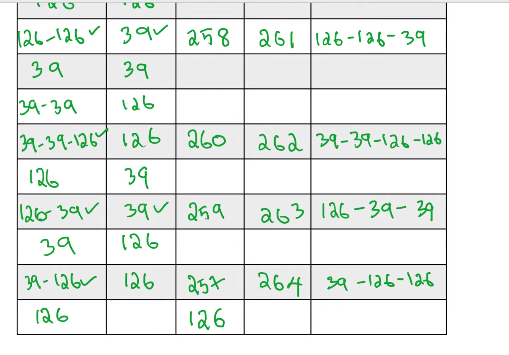 126-126✓ 39✓ 258 261 126-126-39
39 39
39-39 126
39-39-126✓ 126 260 262 39-39-126-126
126 39
126-39✓ 39✓ 259 263 126-39-39
39 126
39-126✓ 126 257 264 39-126-126
126 126